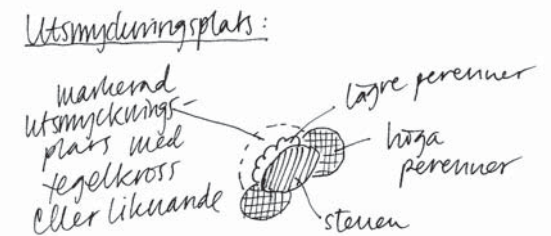 Utsmyckningsplats:
markerad
utsmycknings-
plats med
tegelkross
eller liknande
lägre perenner
höga
perenner
stenen